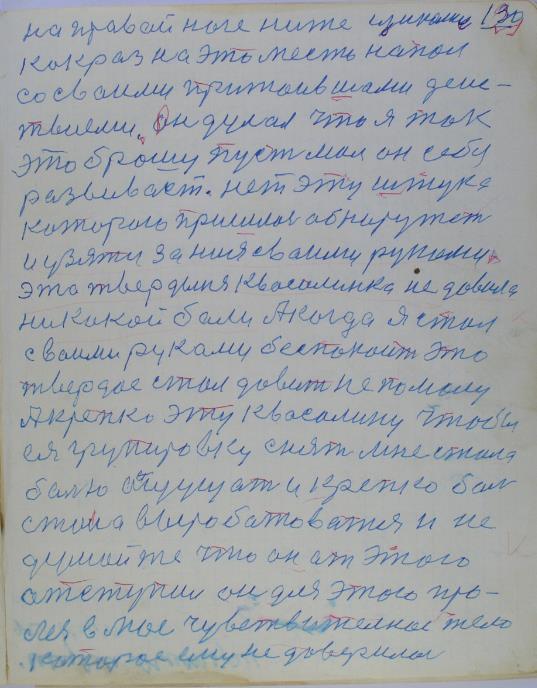 на правай ноге ниже щиколки 139
как раз на это месть напол
со своими притаившами деис-
твиеми, Он думал что я так
это брошу пуст мол он себу
развивает. нет эту штука
которого пришлос обнаружет
и узяти за ния своими рукому,
это твердыня квасолинка не довала
никокой бали А когда я стал
своими руками беспокоит это
твердое стал давит не помалу
А крепко эту квасолину чтобы
ея групировку снят мне стала
балю ощущат и крепко бал
стала выробатоватся и не
думайте что он ат этого
отступил он для этого про-
лея в мое чувствителное тело
которое ему не доверилос